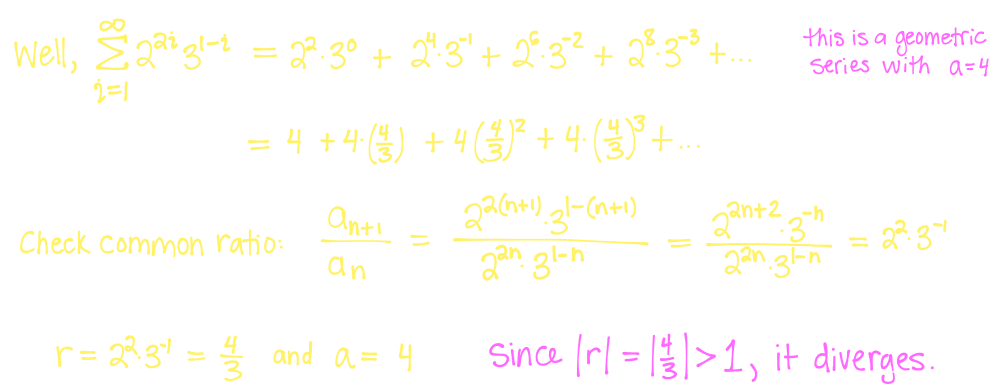 Well, \sum_{i=1}^{\infty} 2^{2i} 3^{1-i} = 2^2·3^0 + 2^4·3^{-1} + 2^6·3^{-2} + 2^8·3^{-3} + ...
this is a geometric
series with a=4
= 4 + 4·(4/3) + 4(4/3)^2 + 4·(4/3)^3 + ...
Check common ratio: a_{n+1}/a_n = (2^{2(n+1)}·3^{1-(n+1)})/(2^{2n}·3^{1-n}) = (2^{2n+2}·3^{-n})/(2^{2n}·3^{1-n}) = 2^2·3^{-1}
r = 2^2·3^{-1} = 4/3 and a = 4 Since |r| = |4/3| > 1, it diverges.